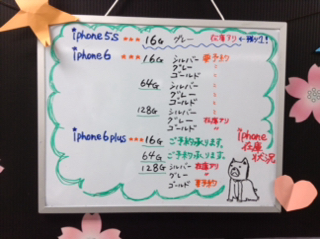 iphone5s ・・・ 16G グレー 在庫アリ
iphone6 ・・・ 16G シルバー 要予約
グレー 〃
ゴールド 〃
64G シルバー 〃
グレー 〃
ゴールド 〃
128G シルバー 〃
グレー 在庫アリ
ゴールド 〃
iphone6plus ・・・ 16G ご予約承ります。
64G ご予約承ります。
128G シルバー 在庫アリ
グレー 〃
ゴールド 要予約
iphone
在庫
状況